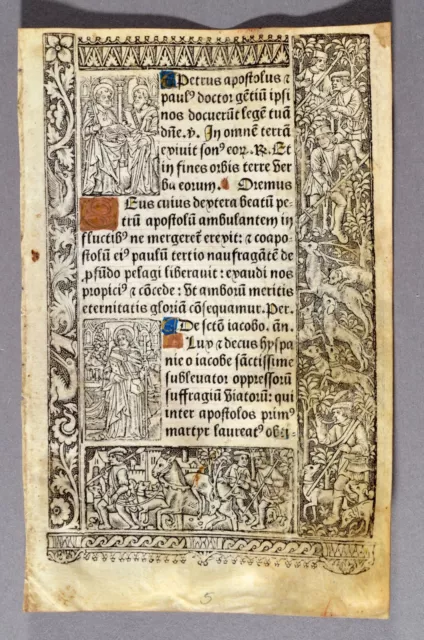 Petrus apostolus ⁊
paulꝰ doctor gētiū ipsi
nos docuerūt legē tuā
dñe. ꝟ. In omnē terrā
exiuit sonꝰ eoꝝ. R. Et
in fines orbis terre ver
ba eorum. Oremus
Deus cuius dextera beatū pe-
trū apostolū ambulantem in
fluctibꝰ ne mergeret̄ erexit: ⁊ coapo-
stolū eiꝰ paulū tertio naufragātē
de ꝓfūdo pelagi liberauit: exaudi nos
propiciꝰ ⁊ cōcede: vt amborū meritis
eternitatis gloriā cōsequamur. Per.
De sctō iacobo. añ.
Lux ⁊ decus hyspa
nie o iacobe sāctissime
subleuator oppressorū
suffragiū viatorū: qui
inter apostolos primꝰ
martyr laureatꝰ obti-
5